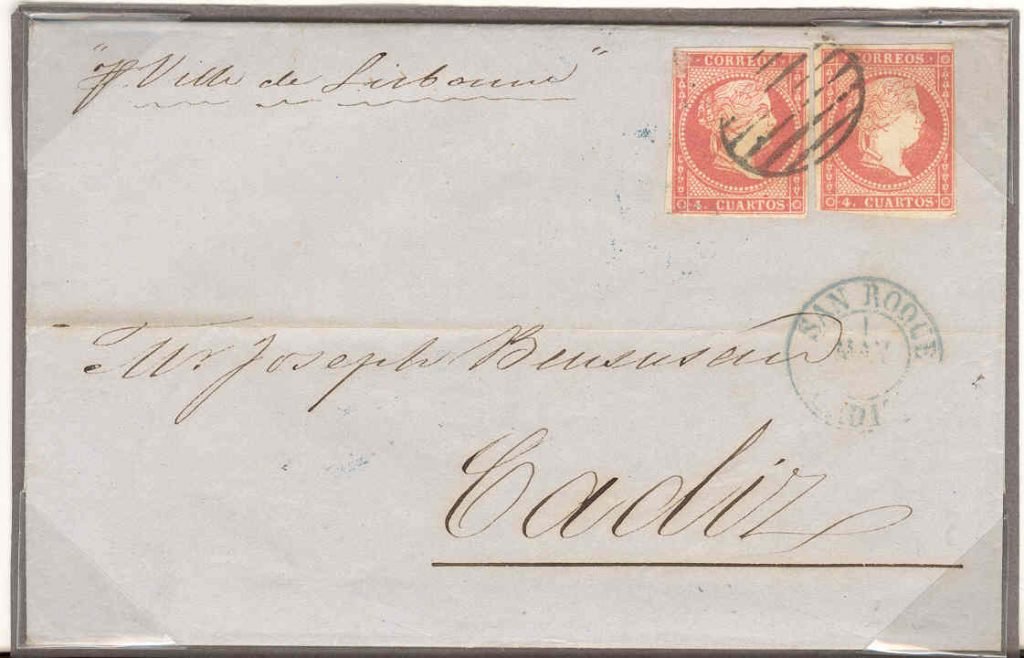 "p Ville de Lisbonne"
CORREOS
4. CUARTOS
CORREOS
4. CUARTOS
SAN ROQUE
1
Mr Joseph Bensusan
Cadiz